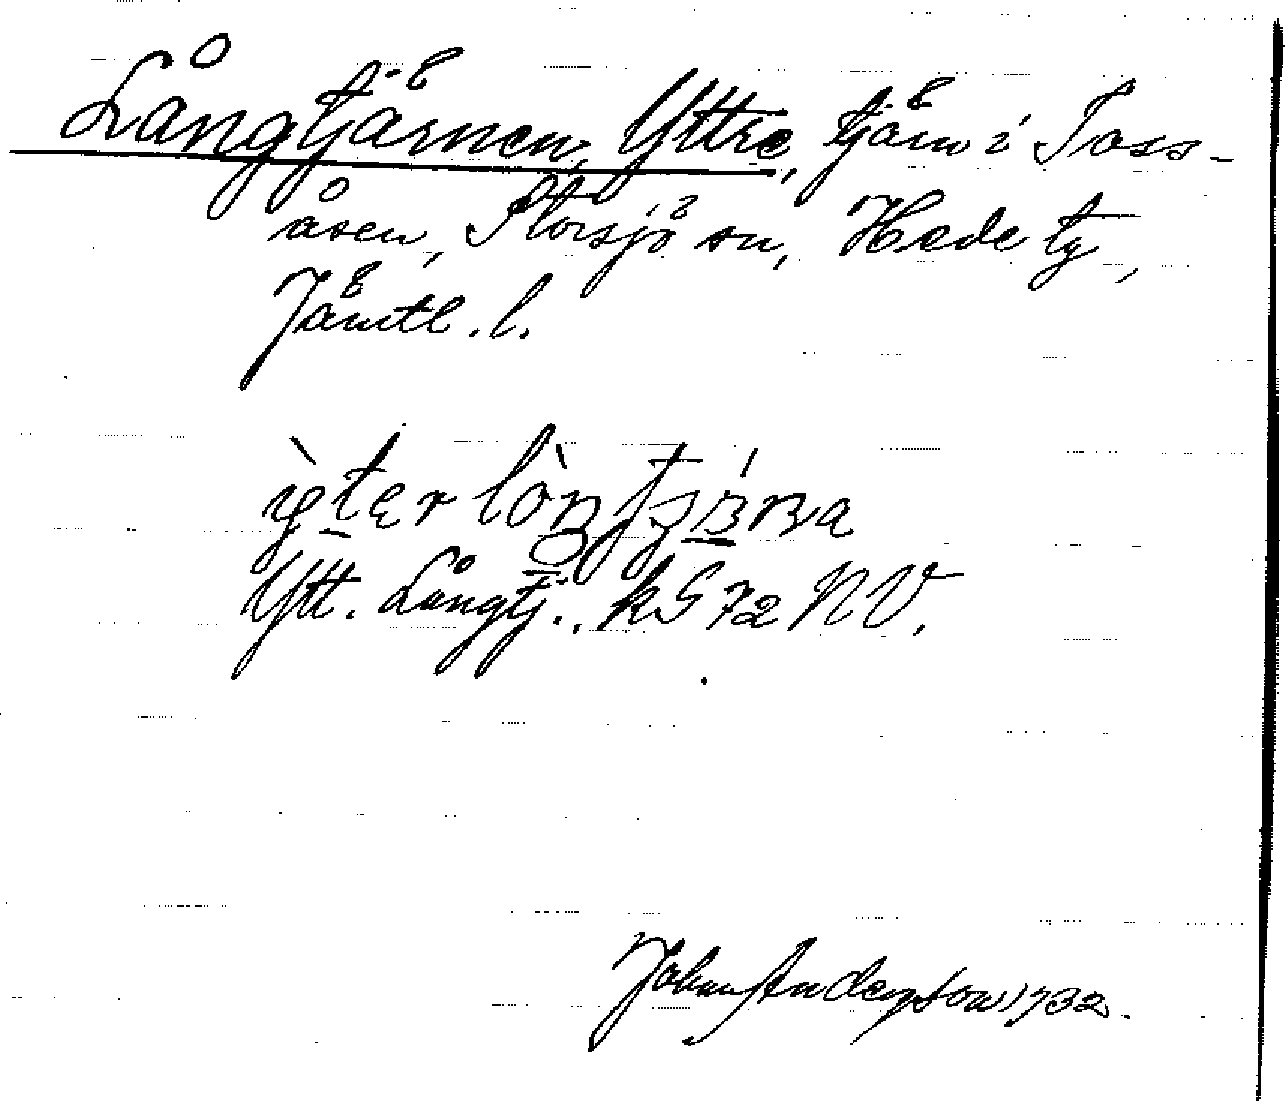 Långtjärnen, Yttre, tjärn i Toss-
åsen, Storsjö sn, Hede tg,
Jämtl. l.
Ytt. Långtj.. kG 72 NV.
John Anderson 1932.